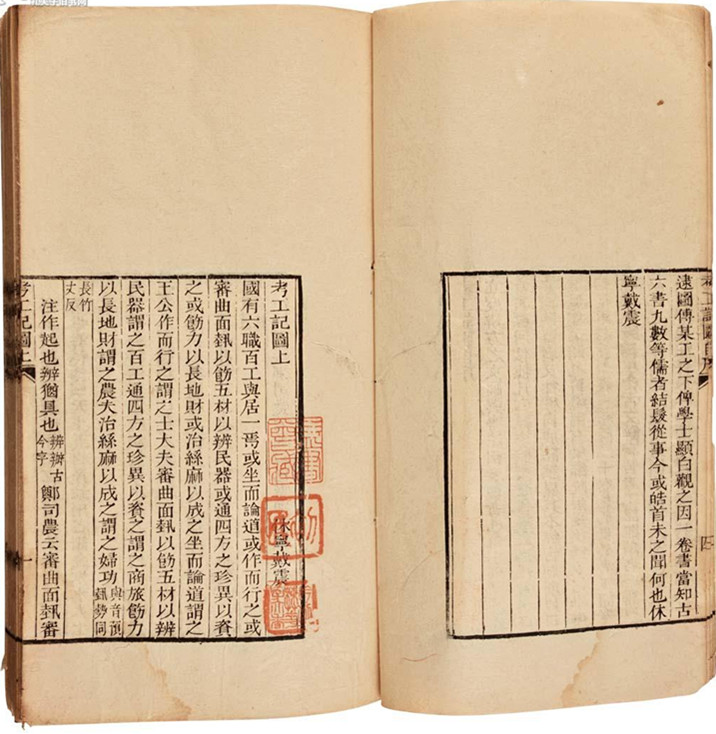 考工記圖自序
逺圖傅某工之下俾學士顯白觀之因一卷書當知古
六書九數等儒者結髮從事今或皓首未之聞何也休
寧戴震
四
考工記圖上
休寧戴震
國有六職百工與居一焉或坐而論道或作而行之或
審曲面埶以飭五材以辨民器或通四方之珍異以資
之或飭力以長地財或治絲麻以成之坐而論道謂之
王公作而行之謂之士大夫審曲面埶以飭五材以辨
民器謂之百工通四方之珍異以資之謂之商旅飭力
以長地財謂之農夫治絲麻以成之謂之婦功 與音預
埶勢同
長竹
丈反
注作起也辨猶具也 辨辦古
今字
鄭司農云審曲面埶審
考工記圖上
一